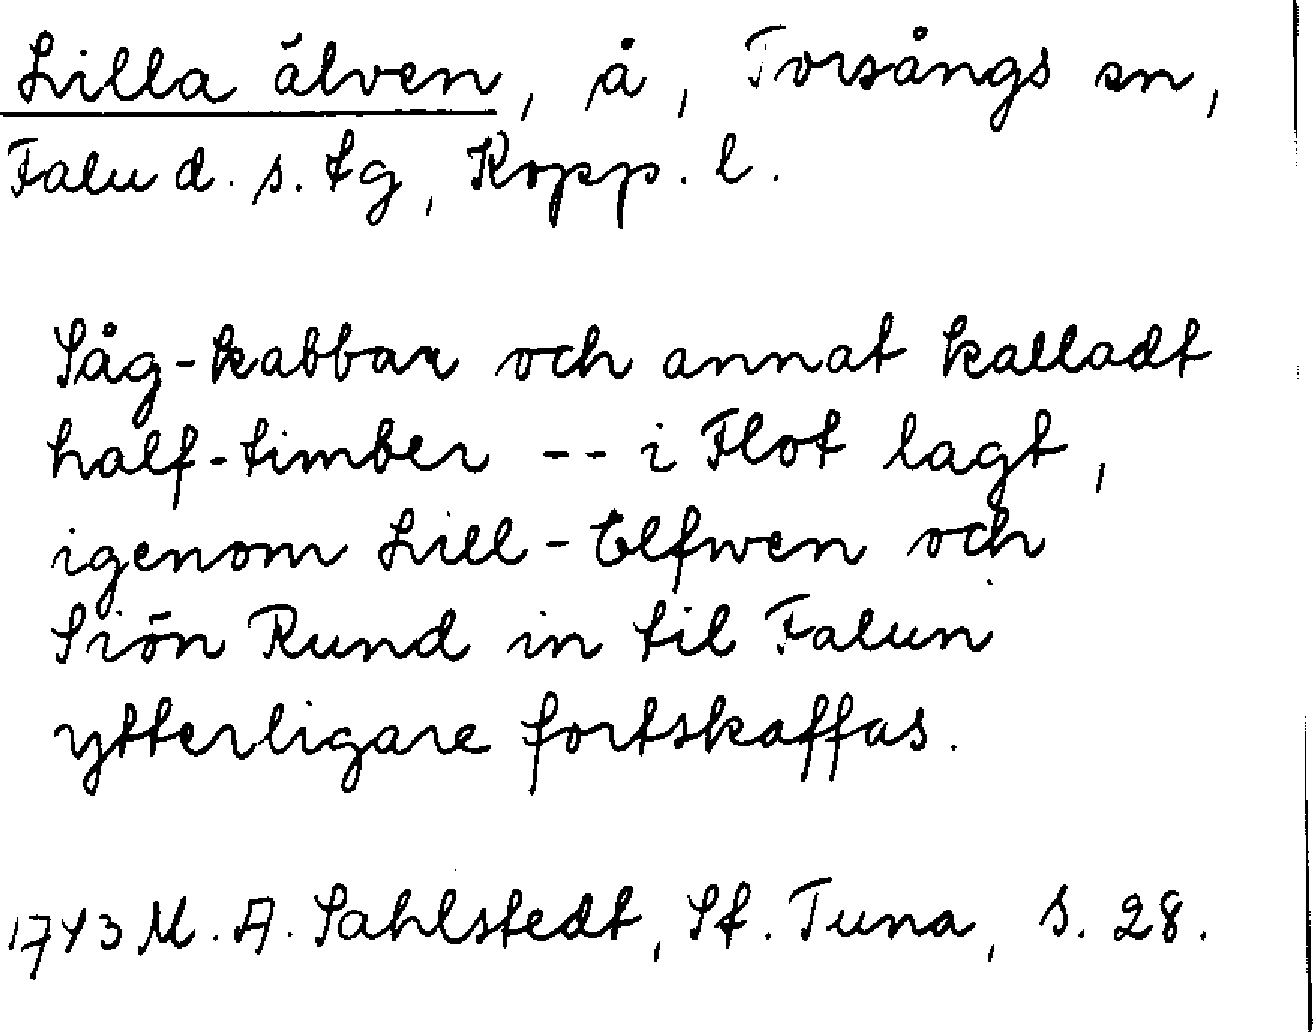 Lilla älven, å, Torsångs sn,
Falu d. s. tg, Kopp. l.
Såg-kabbar och annat kalladt
half-timber -- i Flot lagt,
igenom Lill-Elfwen och
Siön Rund in til Falun
ytterligare fortskaffas.
1743 M. A. Sahlstedt, St. Tuna, s. 28.